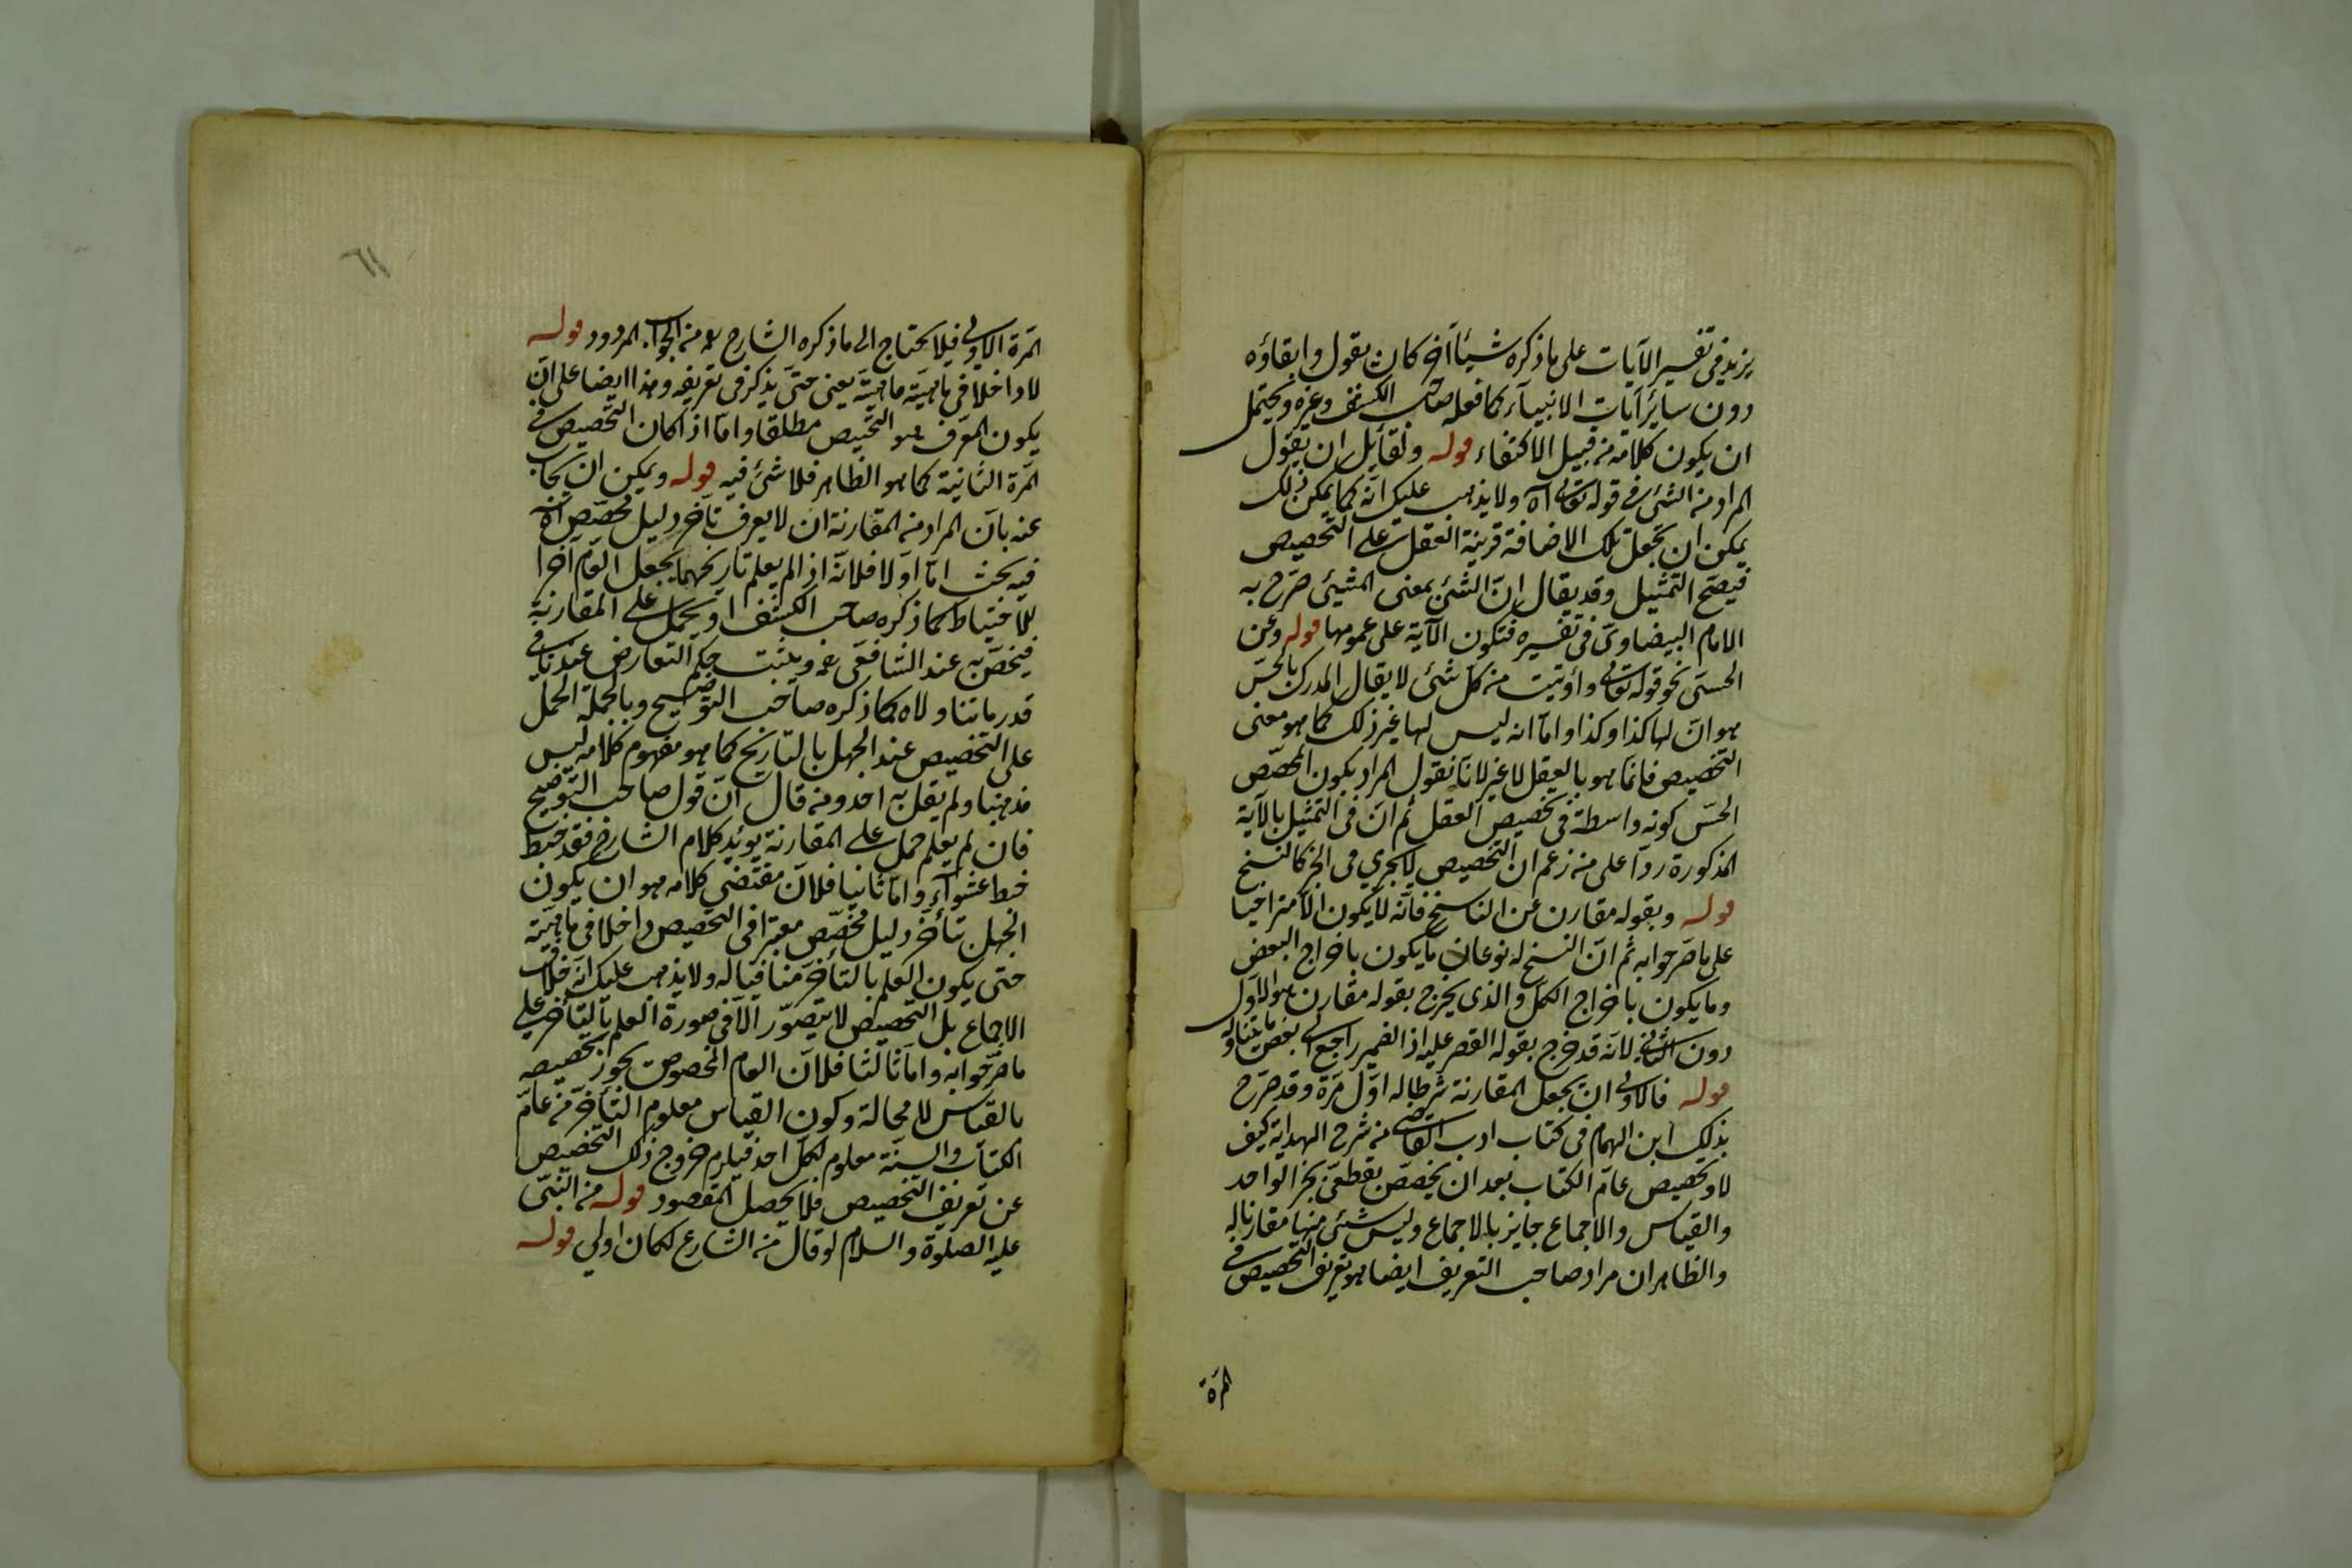 يزيد فى تفسير الآيات على ما ذكره شيئا آخر كان يقول وابقاؤه
دون سائر آيات الانبيآء كما فعله صاحب الكشف وغيره ويحتمل
ان يكون كلامه من قبيل الاكتفاء قوله ولقايل ان يقول
المراد من الشئ فى قوله تعالى اه ولا يذهب عليك انه كما يمكن ذلك
يمكن ان يجعل تلك الاضافة قرينة العقل على التخصيص
فيصح التمثيل وقد يقال ان الشئ بمعنى المشيئ صرح به
الامام البيضاوى فى تفسيره فتكون الآية على عمومها قوله وعن
الحسى نحو قوله تعالى وأوتيت من كل شئ لا يقال المدرك بالحس
هو ان لها كذا وكذا واما انه ليس لها غير ذلك كما هو معنى
التخصيص فانما هو بالعقل لا غير لانا نقول المراد بكون المخصص
الحس كونه واسطة فى تخصيص العقل ثم ان فى التمثيل بالآية
المذكورة ردا على من زعم ان التخصيص لا يجرى فى الخبر كالنسخ
قوله وبقوله مقارن عن الناسخ فانه لا يكون الا متراخيا
على ما صرحوا به ثم ان النسخ له نوعان ما يكون باخراج البعض
وما يكون باخراج الكل والذى يخرج بقوله مقارن هو الاول
دون الثانى لانه قد خرج بقوله القصر عليه اذ الضمير راجع الى بعض ما يتناوله
قوله فالاولى ان يجعل المقارنة شرطا له اول مرة وقد صرح
بذلك ابن الهمام فى كتاب ادب القاضى من شرح الهداية كيف
لا وتخصيص عام الكتاب بعد ان يخصص بقطعى بخبر الواحد
والقياس والاجماع جايز بالاجماع وليس شئ منها مقارنا له
والظاهر ان مراد صاحب التعريف ايضا هو تعريف التخصيص فى
المرة
٦١
المرة الاولى فلا يحتاج الى ما ذكره الشارح من الجواب المردود قوله
لا داخلا فى ماهيته ماهيته يعنى حتى يذكر فى تعريفه وهذا ايضا على ان
يكون المعرف هو التخصيص مطلقا واما اذا كان التخصيص فى
المرة الثانية كما هو الظاهر فلا شئ فيه قوله ويمكن ان يجاب
عنه بان المراد من المقارنة ان لا يعرف تأخر دليل مخصص اه
فيه بحث اما اولا فلانه اذا لم يعلم تاريخهما يجعل العام آخرا
للاحتياط كما ذكره صاحب الكشف او يحمل على المقارنة
فيخص به عند الشافعى ويثبت حكم التعارض عندنا فى
قدر ما تناولاه كما ذكره صاحب التوضيح وبالجملة الحمل
على التخصيص عند الجهل بالتاريخ كما هو مفهوم كلامه ليس
مذهبنا ولم يقل به احد ومن قال ان قول صاحب التوضيح
فان لم يعلم حمل على المقارنة يؤيد كلام الشارح فقد خبط
خبط عشوآء واما ثانيا فلان مقتضى كلامه هو ان يكون
الجهل بتأخر دليل مخصص معتبرا فى التخصيص داخلا فى ماهيته
حتى يكون العلم بالتأخر منافيا له ولا يذهب عليك انه خلاف
الاجماع بل التخصيص لا يتصور الا فى صورة العلم بالتأخر على
ما صرحوا به واما ثالثا فلان العام المخصوص يجوز تخصيصه
بالقياس لا محالة وكون القياس معلوم التأخر من عام
الكتاب والسنة معلوم لكل احد فيلزم خروج ذلك التخصيص
عن تعريف التخصيص فلا يحصل المقصود قوله من النبى
عليه الصلوة والسلام لو قال من الشارع لكان اولى قوله